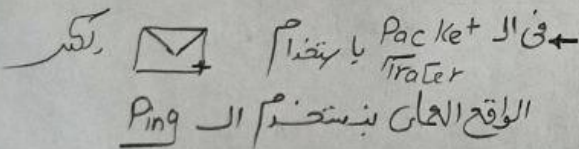 ← فى الـ Packet Tracer باستخدام ولكن
الواقع العملى بنستخدم الـ Ping